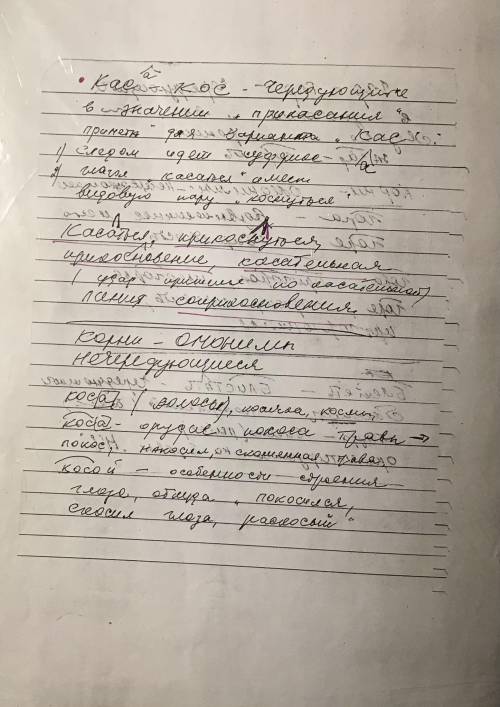 Каса КОС - чередующиеся
в значении „ прикасания" 2
приметы для варианта „ Кас":
1) Следом идет суффикс - а
2) глагл касаться имеет
видовую пару „ коснуться"
Касаться, прикоснуться,
прикосновение, касательная
( удар пришелся по касательной)
соприкосновения.
Корни - омонимы
нечередующиеся
коса ( волосы), косичка, космы,
коса - орудие покоса - травы →
покос, накосил, скошенная трава
косой - особенности строения
глаза, отсюда „ покосился,
скосил глаза, раскосый"